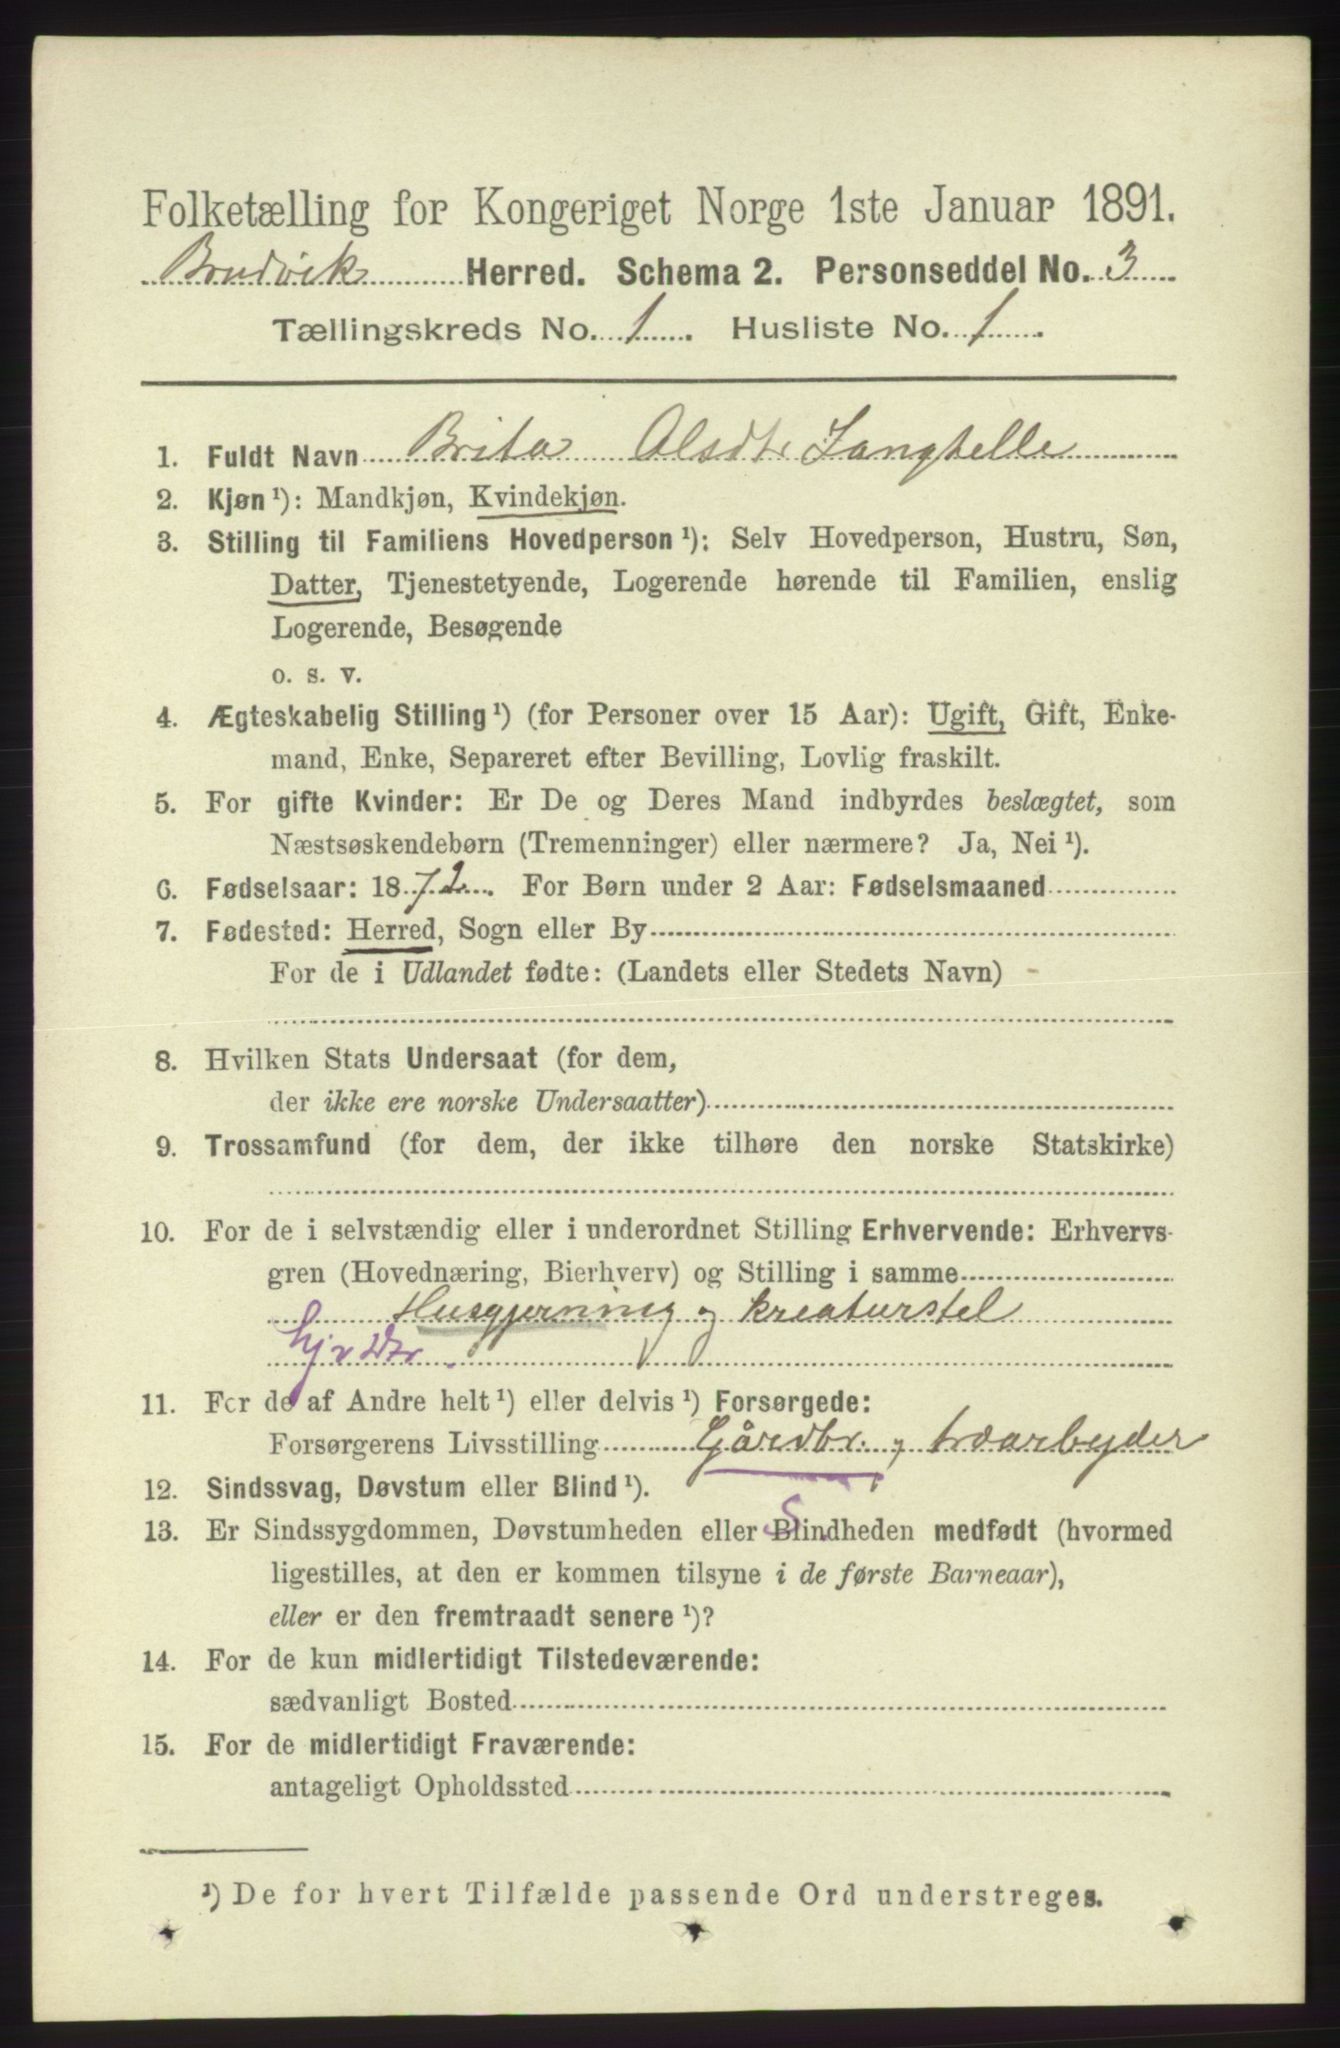 Folketælling for Kongeriget Norge 1ste Januar 1891.
Brudvik Herred. Schema 2. Personseddel No. 3
Tællingskreds No. 1. Husliste No. 1.
1. Fuldt Navn Brita Olsdtr Langhelle
2. Kjøn ¹): Mandkjøn, Kvindekjøn.
3. Stilling til Familiens Hovedperson ¹): Selv Hovedperson, Hustru, Søn,
Datter, Tjenestetyende, Logerende hørende til Familien, enslig
Logerende, Besøgende
o. s. v.
4. Ægteskabelig Stilling ¹) (for Personer over 15 Aar): Ugift, Gift, Enke-
mand, Enke, Separeret efter Bevilling, Lovlig fraskilt.
5. For gifte Kvinder: Er De og Deres Mand indbyrdes beslægtet, som
Næstsøskendebørn (Tremenninger) eller nærmere? Ja, Nei ¹).
6. Fødselsaar: 1872. For Børn under 2 Aar: Fødselsmaaned
7. Fødested: Herred, Sogn eller By
For de i Udlandet fødte: (Landets eller Stedets Navn) -
8. Hvilken Stats Undersaat (for dem,
der ikke ere norske Undersaatter)
9. Trossamfund (for dem, der ikke tilhøre den norske Statskirke)
10. For de i selvstændig eller i underordnet Stilling Erhvervende: Erhvervs-
gren (Hovednæring, Bierhverv) og Stilling i samme
Husgjerning og kreaturstel
11. For de af Andre helt ¹) eller delvis ¹) Forsørgede:
Forsørgerens Livsstilling Gårdbr. og træarbeyder
12. Sindssvag, Døvstum eller Blind ¹).
S.
13. Er Sindssygdommen, Døvstumheden eller Blindheden medfødt (hvormed
ligestilles, at den er kommen tilsyne i de første Barneaar),
eller er den fremtraadt senere ¹)?
14. For de kun midlertidigt Tilstedeværende:
sædvanligt Bosted
15. For de midlertidigt Fraværende:
antageligt Opholdssted
¹) De for hvert Tilfælde passende Ord understreges.